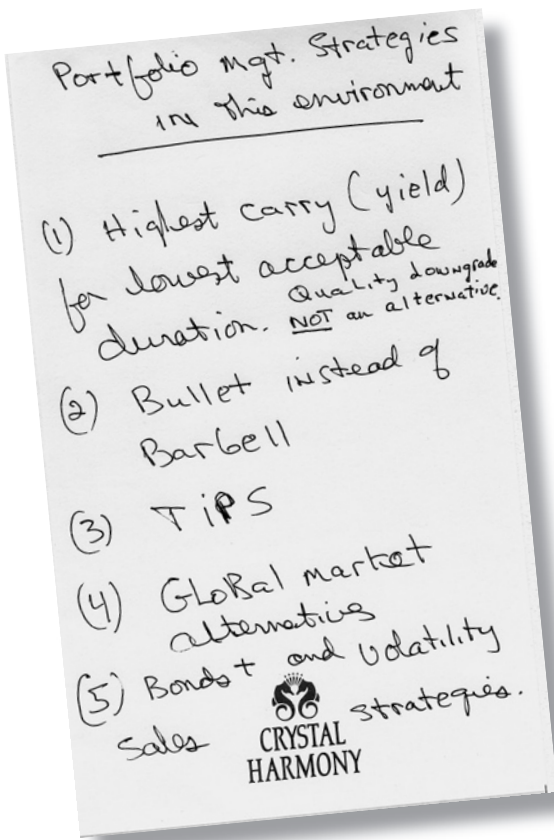 Portfolio Mgt. Strategies
in this environment
(1) Highest carry (yield)
for lowest acceptable
duration. Quality downgrade
NOT an alternative.
(2) Bullet instead of
Barbell
(3) TiPS
(4) GLoBal market
alternatives
(5) Bonds+ and Volatility
Sales strategies.
CRYSTAL
HARMONY